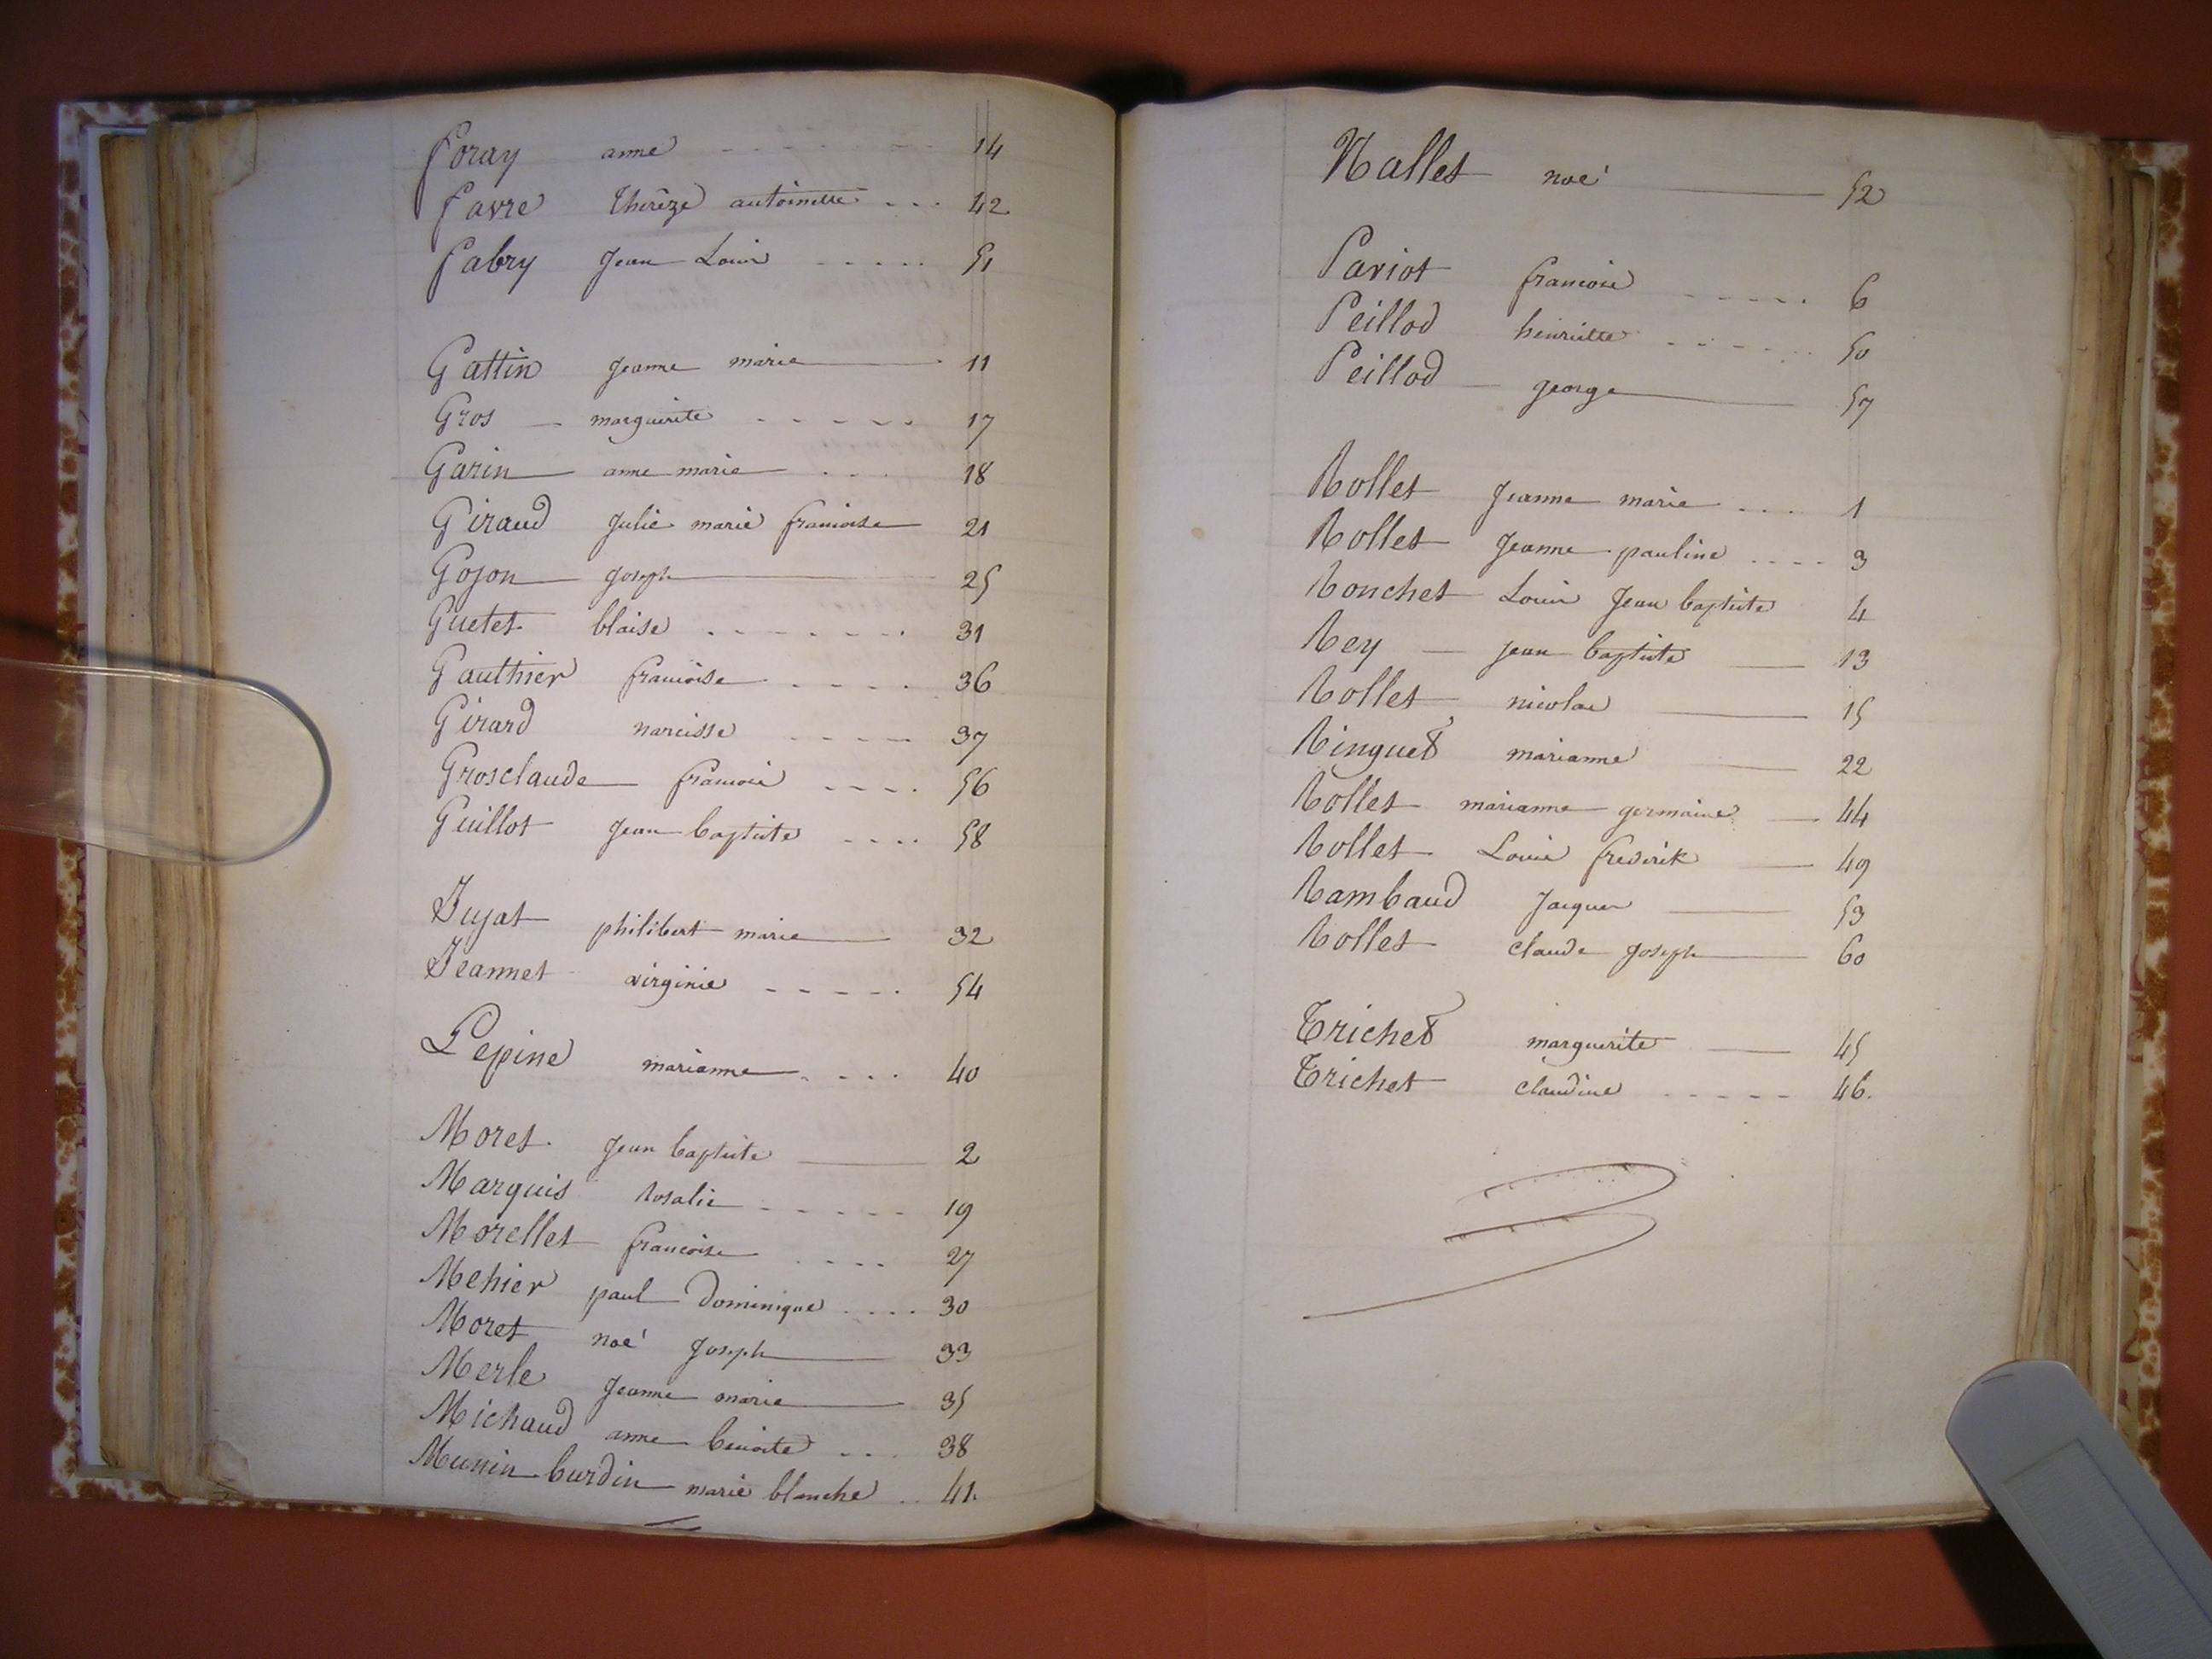 foray anne 14
favre thérèze antoinette 42
fabry jean Louis 51
Gattin jeanne marie 11
Gros marguerite 17
Garin anne marie 18
Giraud julie marie francoise 21
Gojon joseph 25
Guetet blaise 31
Gauthier francoise 36
Girard narcisse 37
Grosclaude francois 56
Guillot jean baptiste 58
Jujat philibert marie 32
Jeannet virginie 54
Lepine marianne 40
Moret jean baptiste 2
Marquis Rosalie 19
Morellet francoise 27
Mehier paul Dominique 30
Moret noé joseph 33
Merle jeanne marie 35
Michaud anne benoite 38
Munin burdin marie blanche 41
Nallet noé 52
Pariot francois 6
Peillod henriette 50
Peillod george 57
Rollet jeanne marie 1
Rollet jeanne pauline 3
Ronchet Louis jean baptiste 4
Rey jean baptiste 13
Rollet nicolas 15
Ringuet marianne 22
Rollet marianne germaine 44
Rollet Louis frederik 49
Rambaud jacques 53
Rollet claude joseph 60
Trichet marguerite 45
Trichet claudine 46